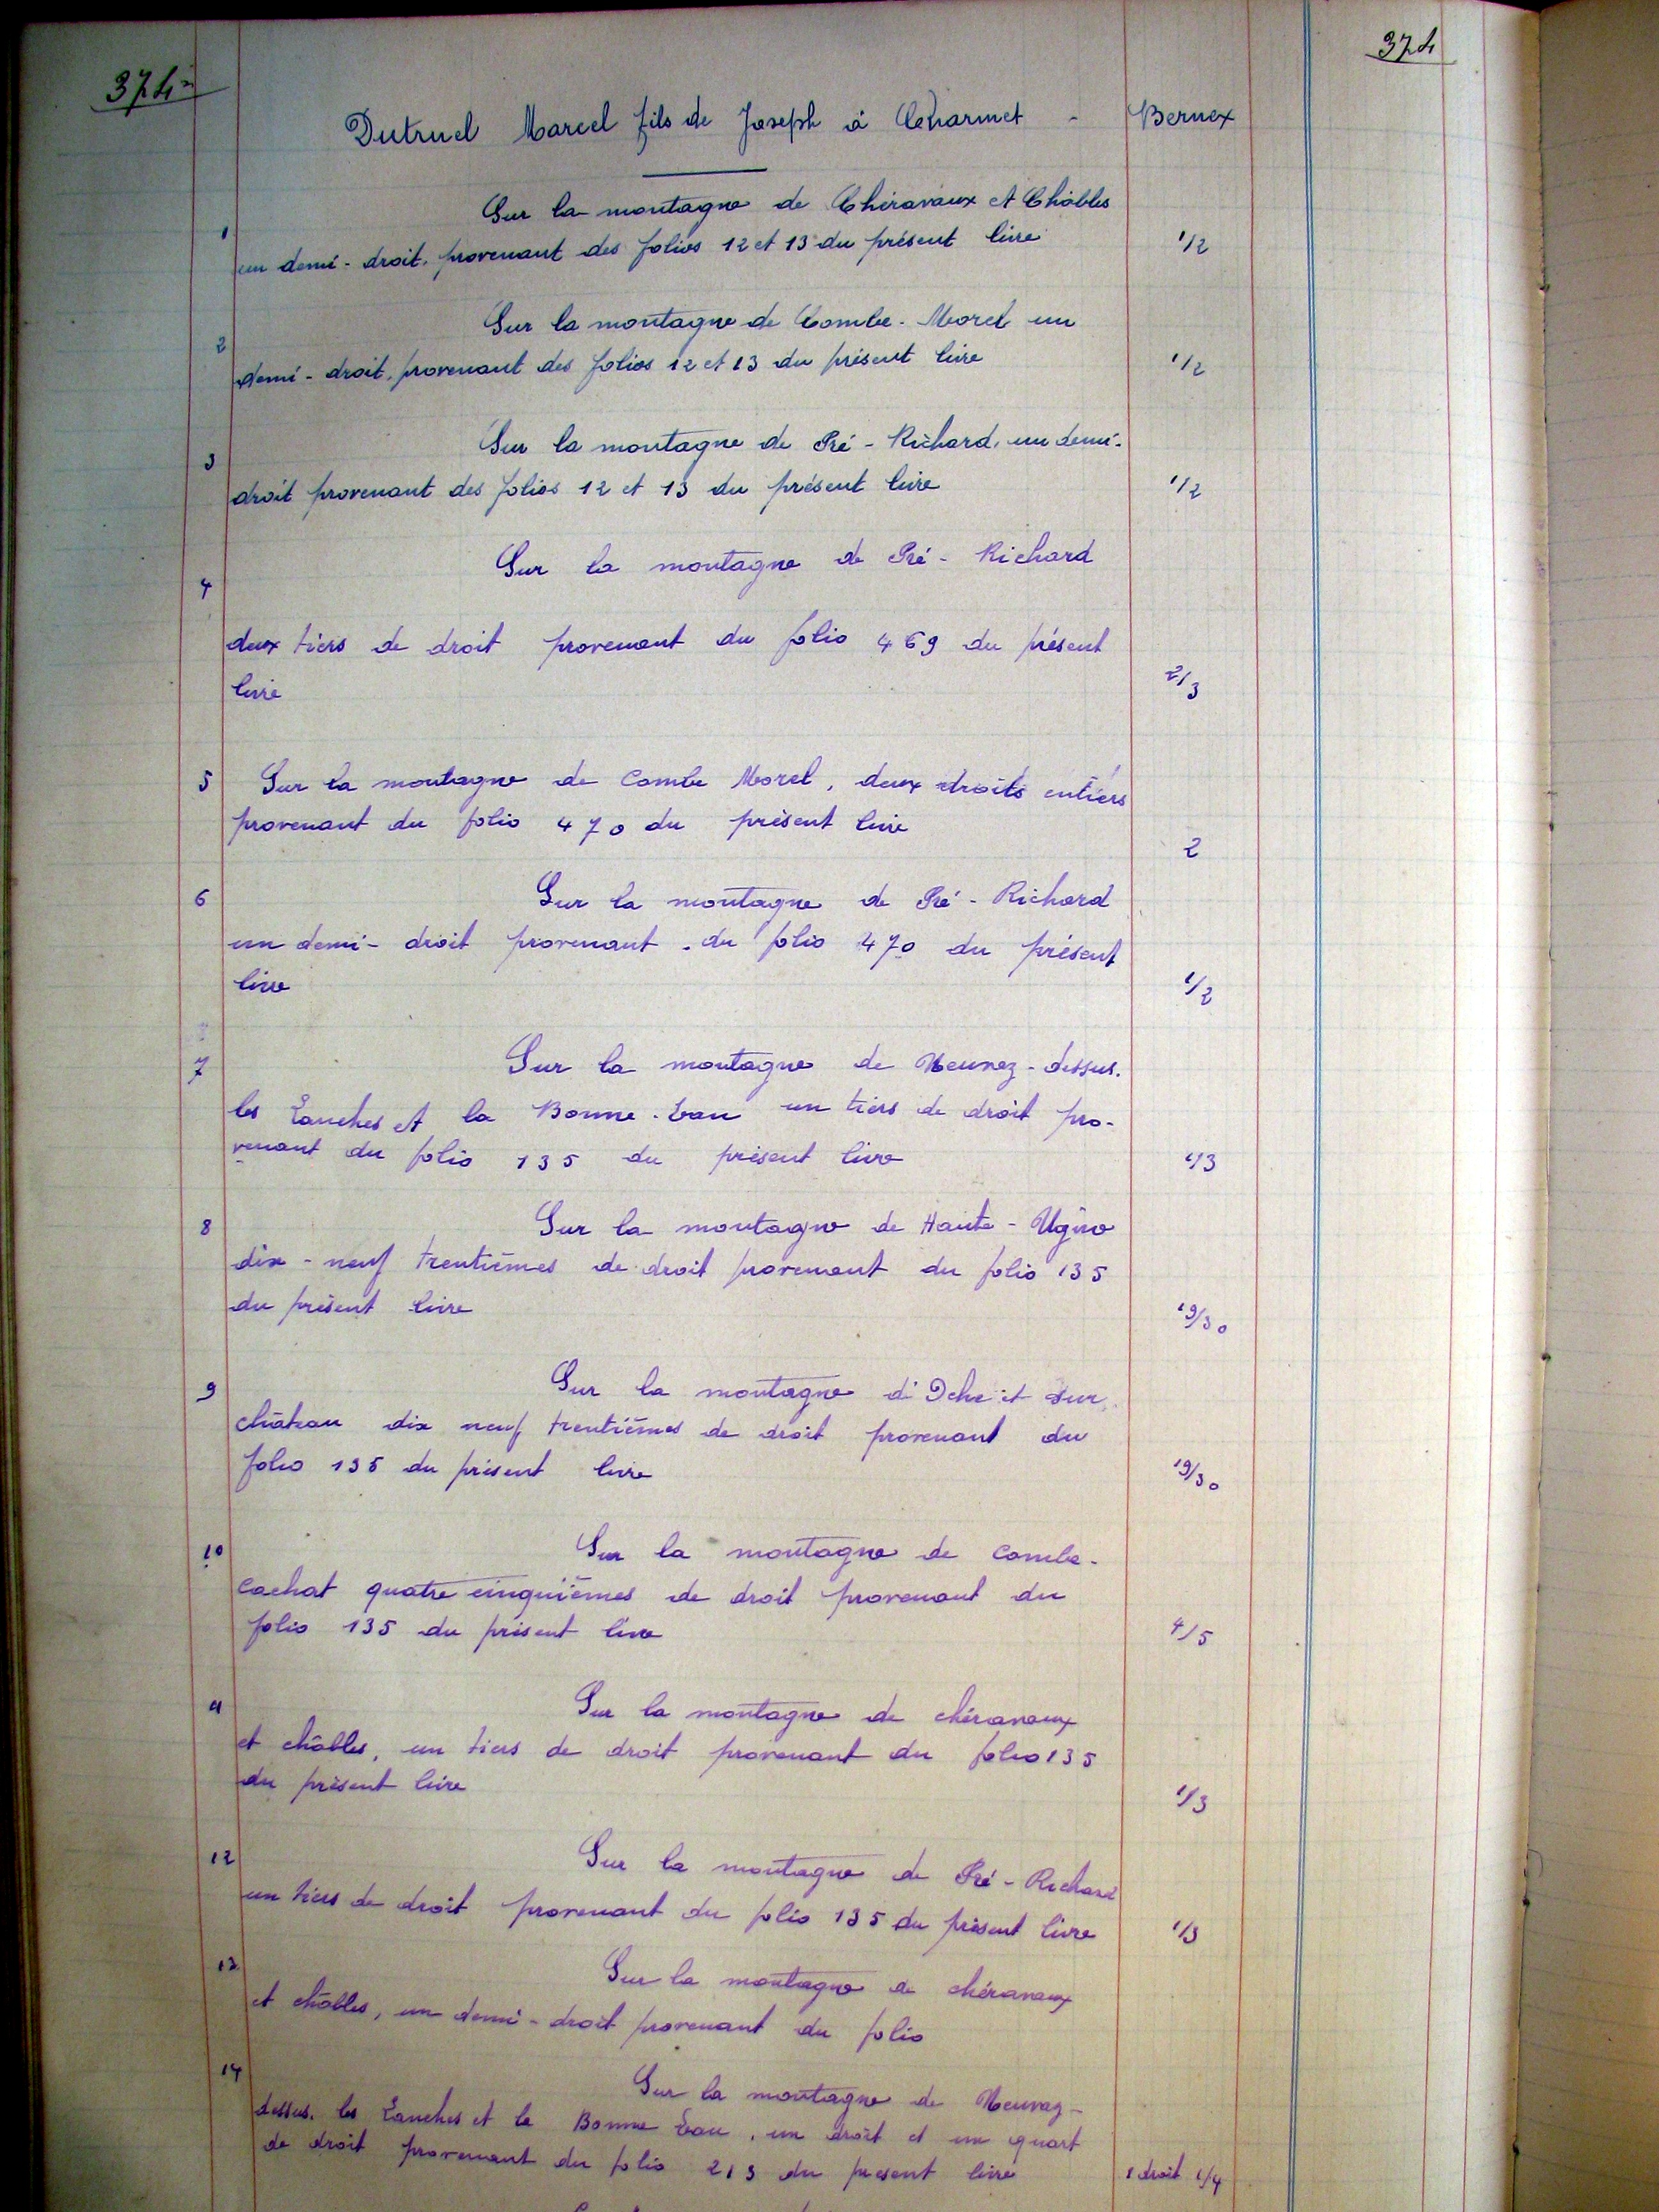 374
374
Dutruel Marcel fils de Joseph à Charmet - Bernex
Sur la montagne de Chéravaux et Châbles
1 un demi-droit, provenant des folios 12 et 13 du présent livre 1/2
Sur la montagne de Combe-Morel un
2 demi-droit, provenant des folios 12 et 13 du présent livre 1/2
Sur la montagne de Pré-Richard, un demi-
3 droit provenant des folios 12 et 13 du présent livre 1/2
Sur la montagne de Pré-Richard
4
deux tiers de droit provenant du folio 469 du présent
livre 2/3
5 Sur la montagne de Combe Morel, deux droits entiers
provenant du folio 470 du présent livre 2
6 Sur la montagne de Pré-Richard
un demi-droit provenant du folio 470 du présent
livre 1/2
7 Sur la montagne de Neuvaz-dessus.
les Tanches et la Bonne-Eau un tiers de droit pro-
venant du folio 135 du présent livre 1/3
8 Sur la montagne de Haute-Ugine
dix-neuf trentièmes de droit provenant du folio 135
du présent livre 19/30
9 Sur la montagne d'Oche et sur
château dix neuf trentièmes de droit provenant du
folio 135 du présent livre 19/30
10 Sur la montagne de Combe-
Cachat quatre cinquièmes de droit provenant du
folio 135 du présent livre 4/5
11 Sur la montagne de chéravaux
et châbles, un tiers de droit provenant du folio 135
du présent livre 1/3
12 Sur la montagne de Pré-Richard
un tiers de droit provenant du folio 135 du présent livre 1/3
13 Sur la montagne de chéravaux
et châbles, un demi-droit provenant du folio
14 Sur la montagne de Neuvaz-
dessus. les Tanches et la Bonne Eau, un droit et un quart
de droit provenant du folio 213 du présent livre 1 droit 1/4